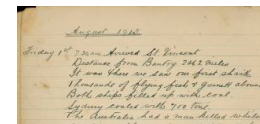 August 1913
Friday 1st 7.30am Arrived St. Vincent
Distance from Bantry 2662 miles
It was here we saw our first shark
Thousands of flying fish & gannett
Both ships filled up with coal.
Sydney coaled with 700 tons.
The Australia had a man killed while